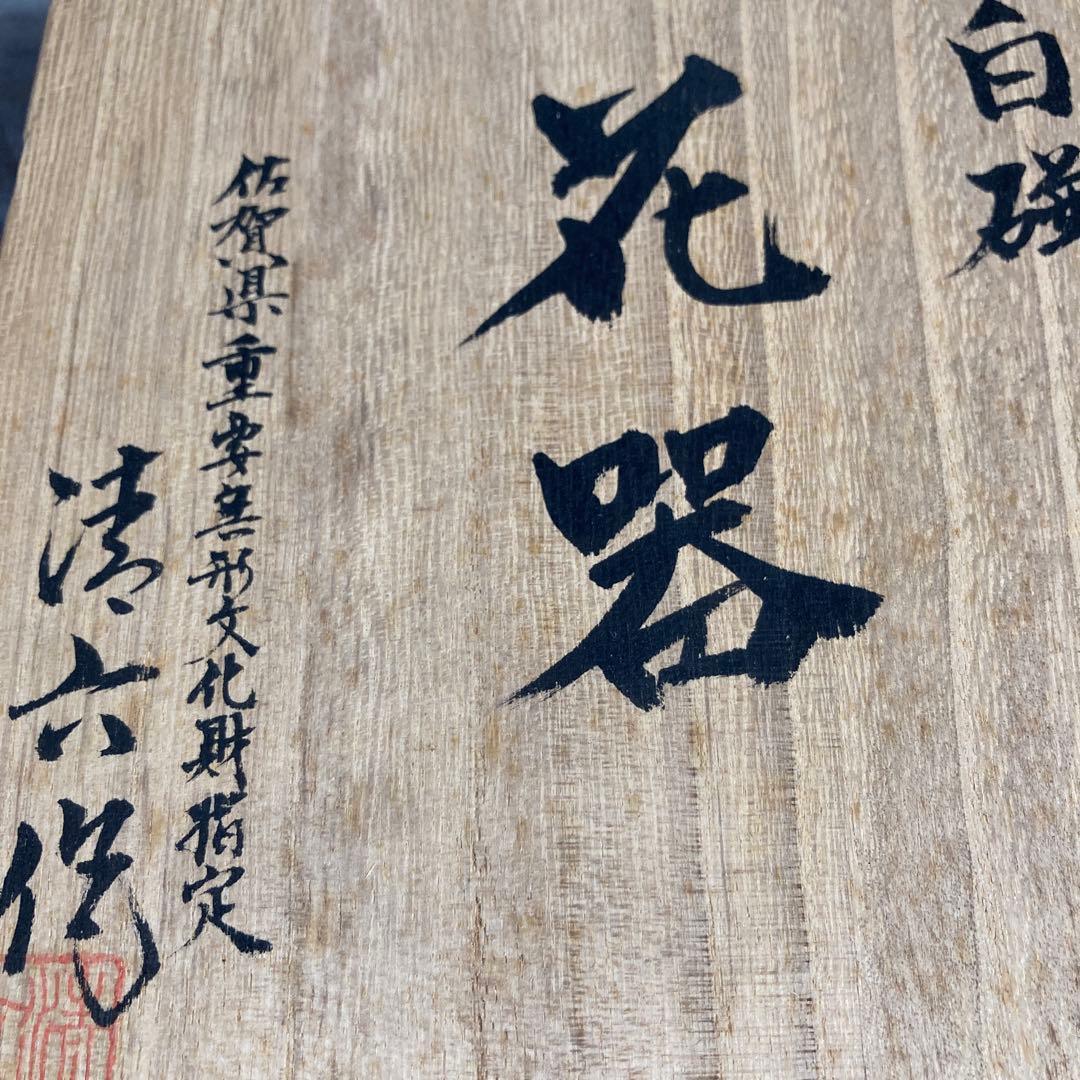 白磁
花器
佐賀県重要無形文化財指定
清六作